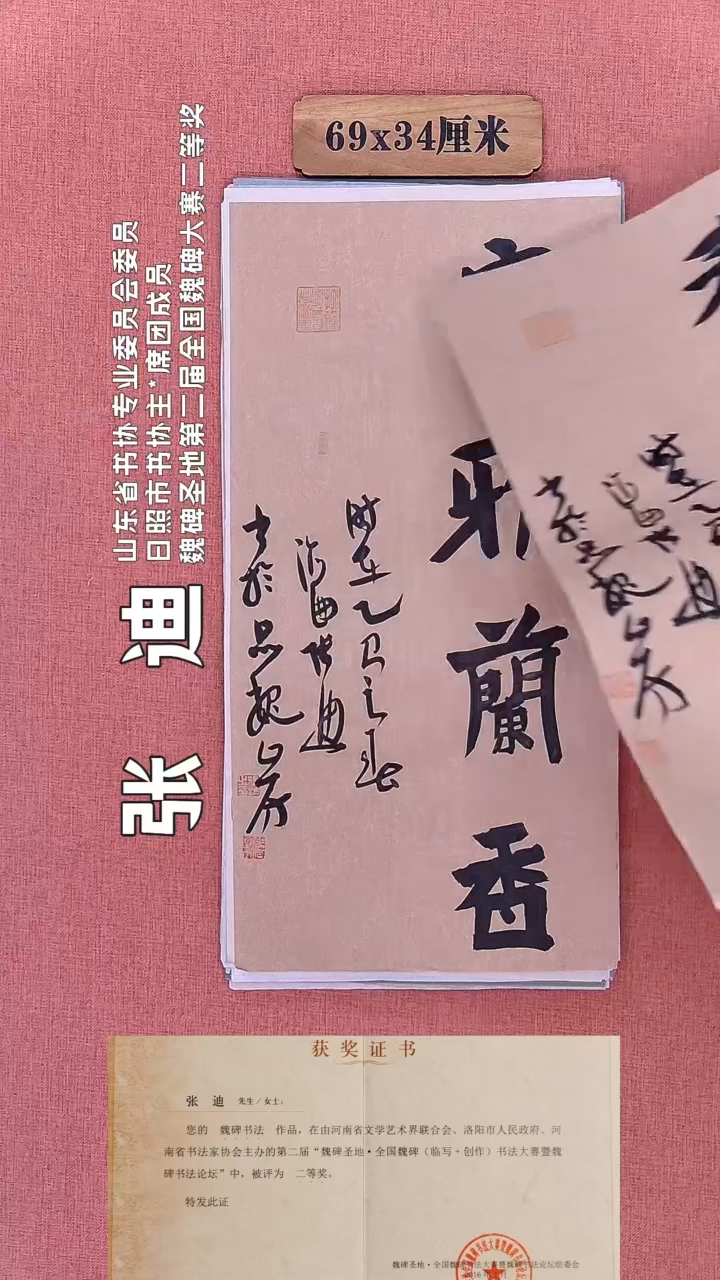 69x34厘米
山东省书协专业委员会委员
日照市书协主*席团成员
魏碑圣地第二届全国魏碑大赛二等奖
张 迪
雅
蘭
香
时在乙巳之春
海曲张迪
书於品魏山房
获奖证书
张 迪 先生/女士：
您的 魏碑书法 作品，在由河南省文学艺术界联合会、洛阳市人民政府、河
南省书法家协会主办的第二届“魏碑圣地·全国魏碑（临写+创作）书法大赛暨魏
碑书法论坛”中，被评为 二等奖。
特发此证
魏碑圣地·全国魏碑书法大赛暨魏碑书法论坛组委会